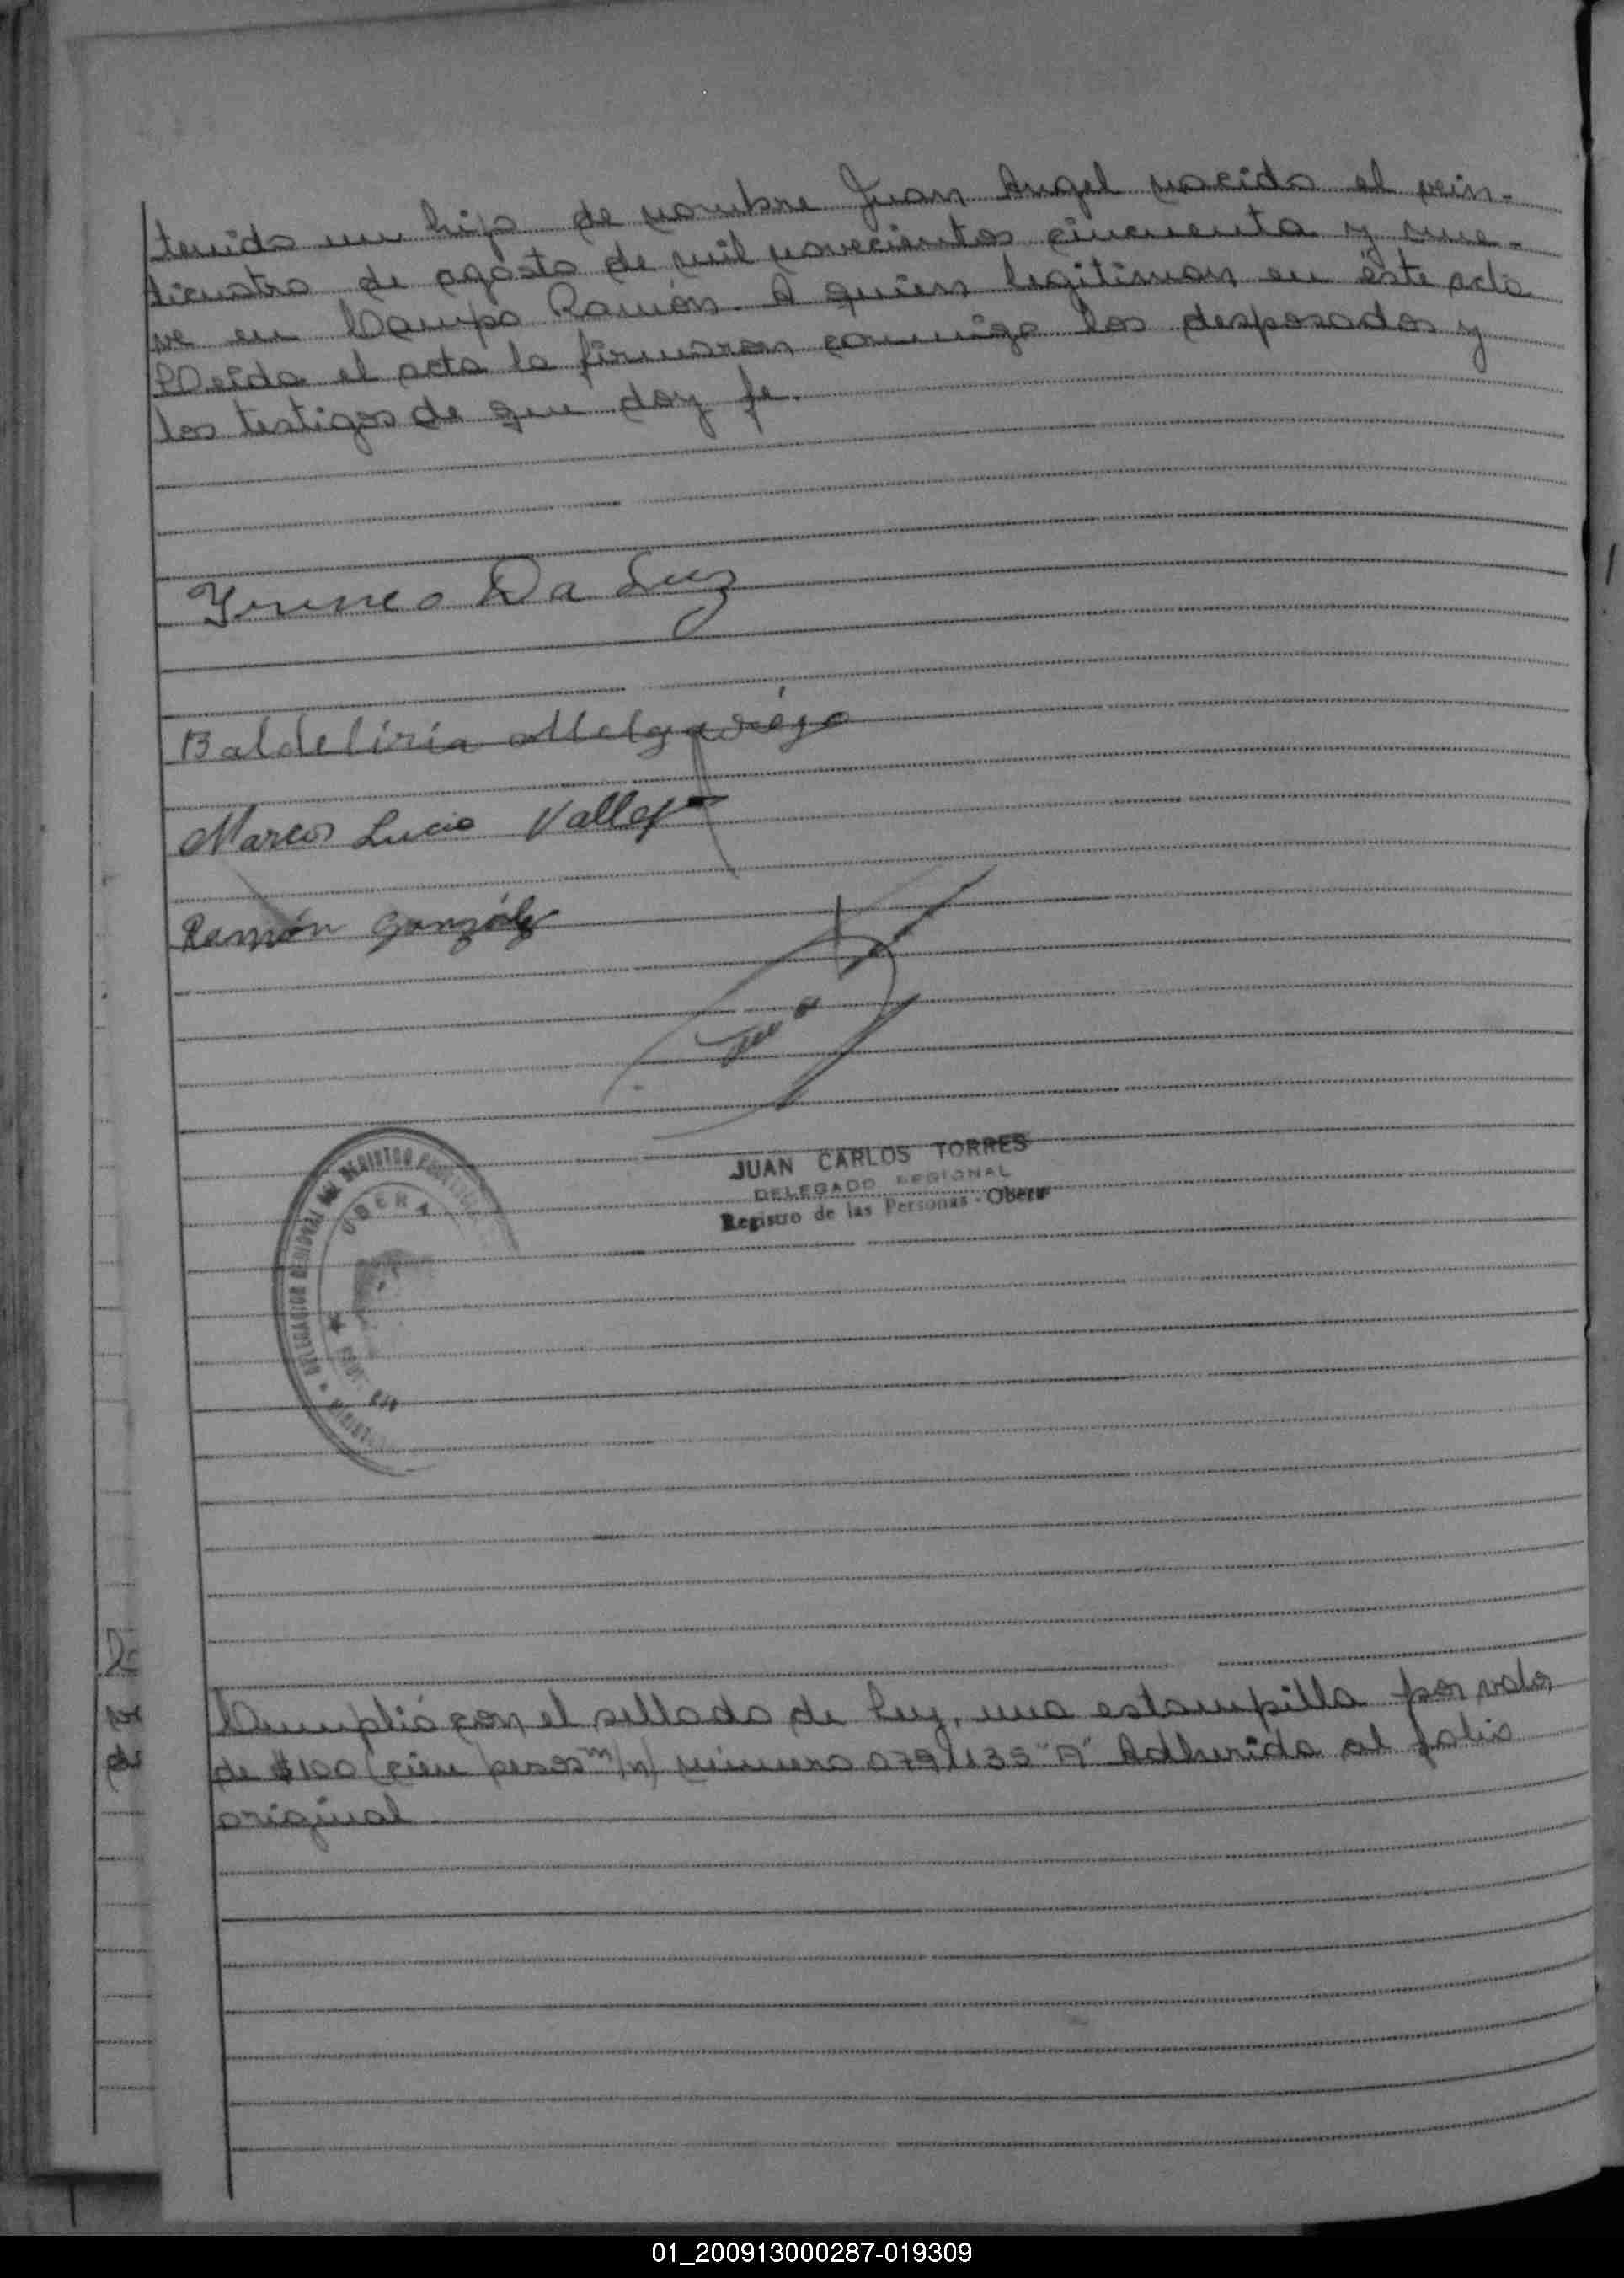 tenido un hijo de nombre Juan Angel nacido el vein-
ticuatro de agosto de mil novecientos cincuenta y nue-
ve en Campo Ramón. A quien legitiman en éste acto
Leída el acta la firmaron conmigo los desposados y
los testigos de que doy fe.
Yreneo Da Luz
Baldeliria Melgarejo
Marcos Lucio Vallejo
Ramón González
JUAN CARLOS TORRES
DELEGADO REGIONAL
Registro de las Personas - Oberá
DELEGACION REGIONAL DEL REGISTRO
OBERA
Cumplió con el sellado de Ley, una estampilla por valor
de $100 (cien pesos m/n) número "A" Adherida al folio
original
01_200913000287-019309